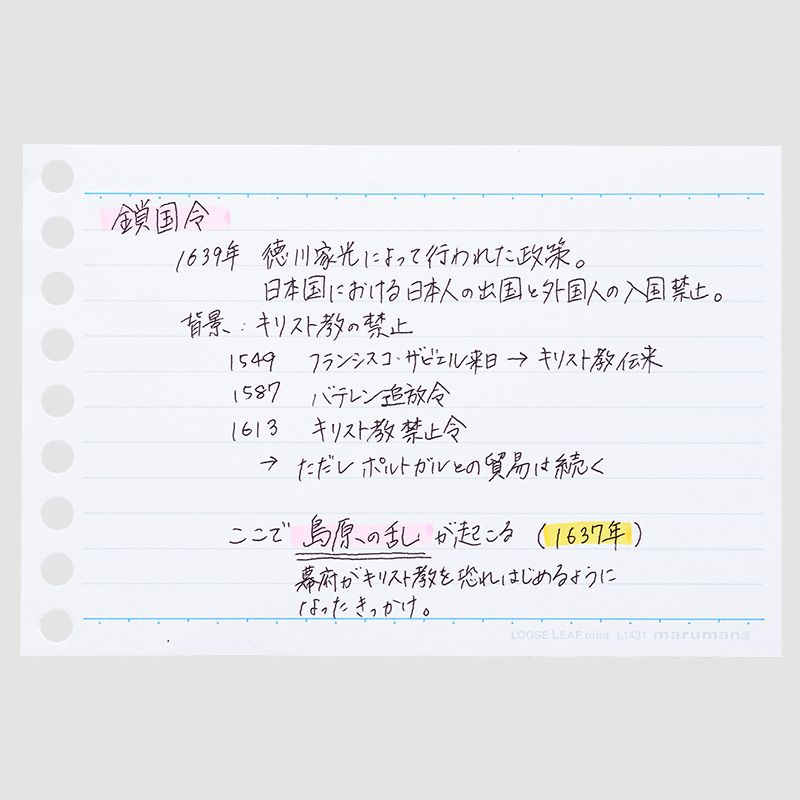 鎖国令
1639年 徳川家光によって行われた政策。
日本国における日本人の出国と外国人の入国禁止。
背景：キリスト教の禁止
1549 フランシスコ・ザビエル来日→キリスト教伝来
1587 バテレン追放令
1613 キリスト教禁止令
→ ただしポルトガルとの貿易は続く
ここで島原の乱が起こる（1637年）
幕府がキリスト教を恐れはじめるように
なったきっかけ。
LOOSE LEAF mini L1431 maruman